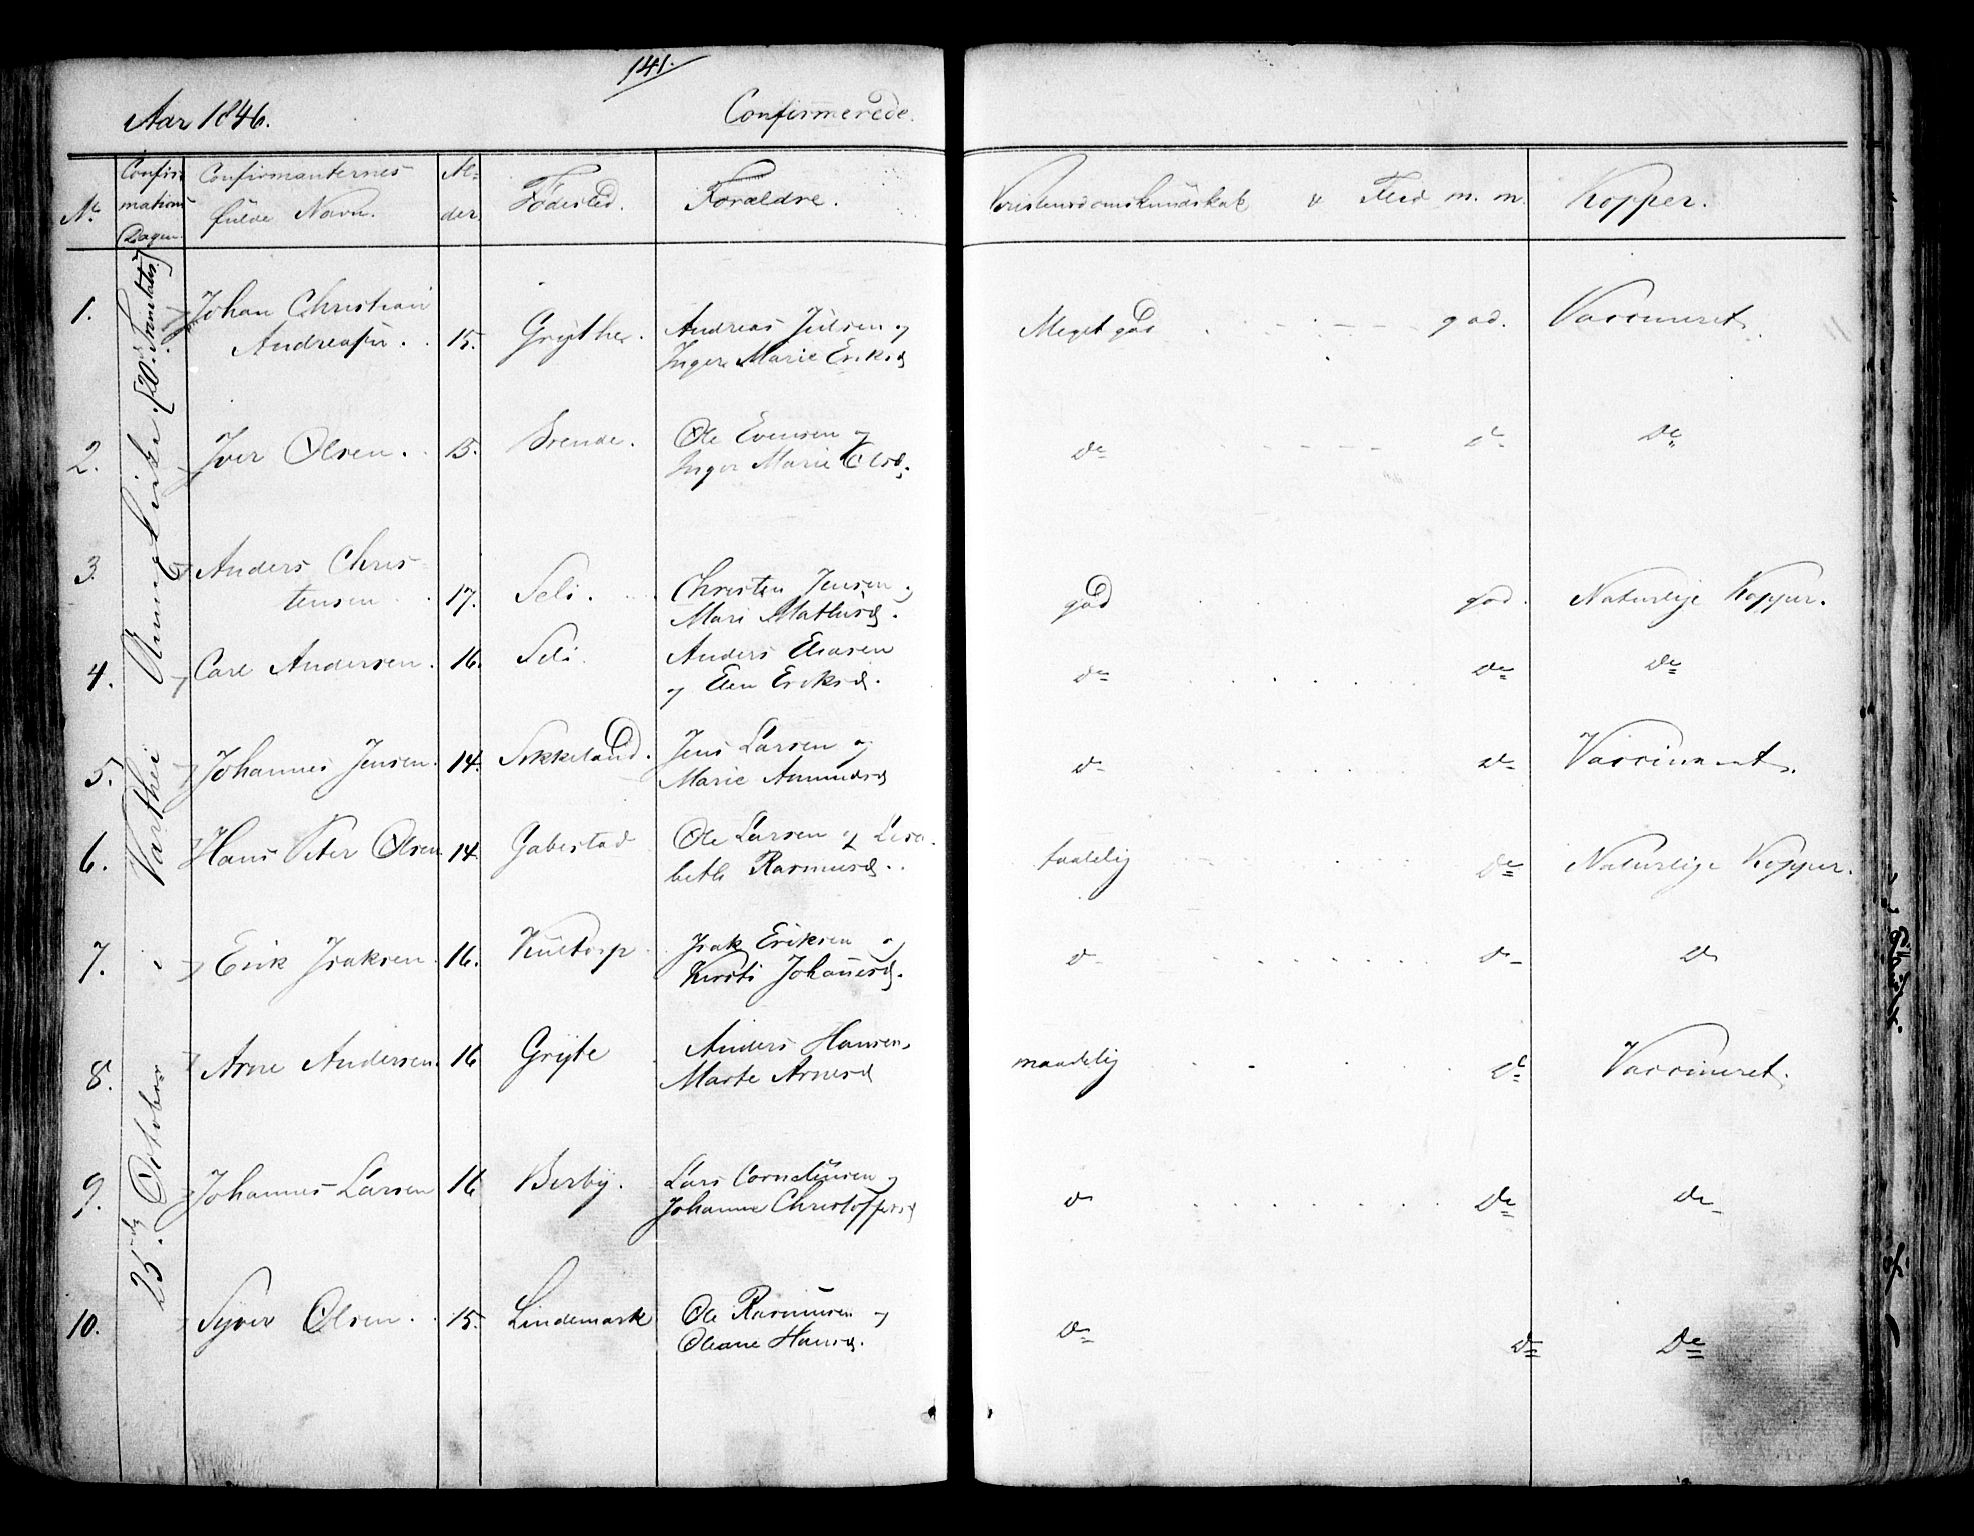 141.
Aar 1846.
Confirmerede.
No
Confir
mations
Dagen.
Confirmanternes
fulde Navn.
Al-
der
Födested.
Forældre.
Kristendomskundskab & Flid m. m.
Kopper.
25de October Varthei Annex Kirke (20. s. Trinitatis)
1. Johan Christian
Andreasen. 15. Gryther. Andreas Julsen og
Inger Marie Eriksd
Meget god god. Vaccineret.
2. Iver Olsen. 15. Brende. Ole Evensen og
Inger Marie Olsd.
do do do
3. Anders Chris-
tensen 17. Seli. Christen Jensen og
Mari Mathisd.
god god. Naturlige Kopper.
4. Carl Andersen. 16. Seli. Anders Eliasen
og Elen Eriksd.
do do do
5. Johannes Jensen. 14. Sikkeland. Jens Larsen og
Marie Amundsd
do do Vaccineret.
6. Hans Peter Olsen 14. Gabestad Ole Larsen og Lisa-
beth Rasmusd.
taalelig do Naturlige Kopper.
7. Erik Isaksen. 16. Kultorp Isak Eriksen og
Kersti Johannesd.
do do do
8. Arne Andersen. 16 Gryte Anders Hansen,
Marte Arnesd
maadelig do Vaccineret.
9. Johannes Larsen 16 Berby. Lars Corneliusen og
Johanne Christoffersd
do do do
10. Syver Olsen. 15. Lindemark Ole Rasmusen og
Oleane Hansd.
do do do